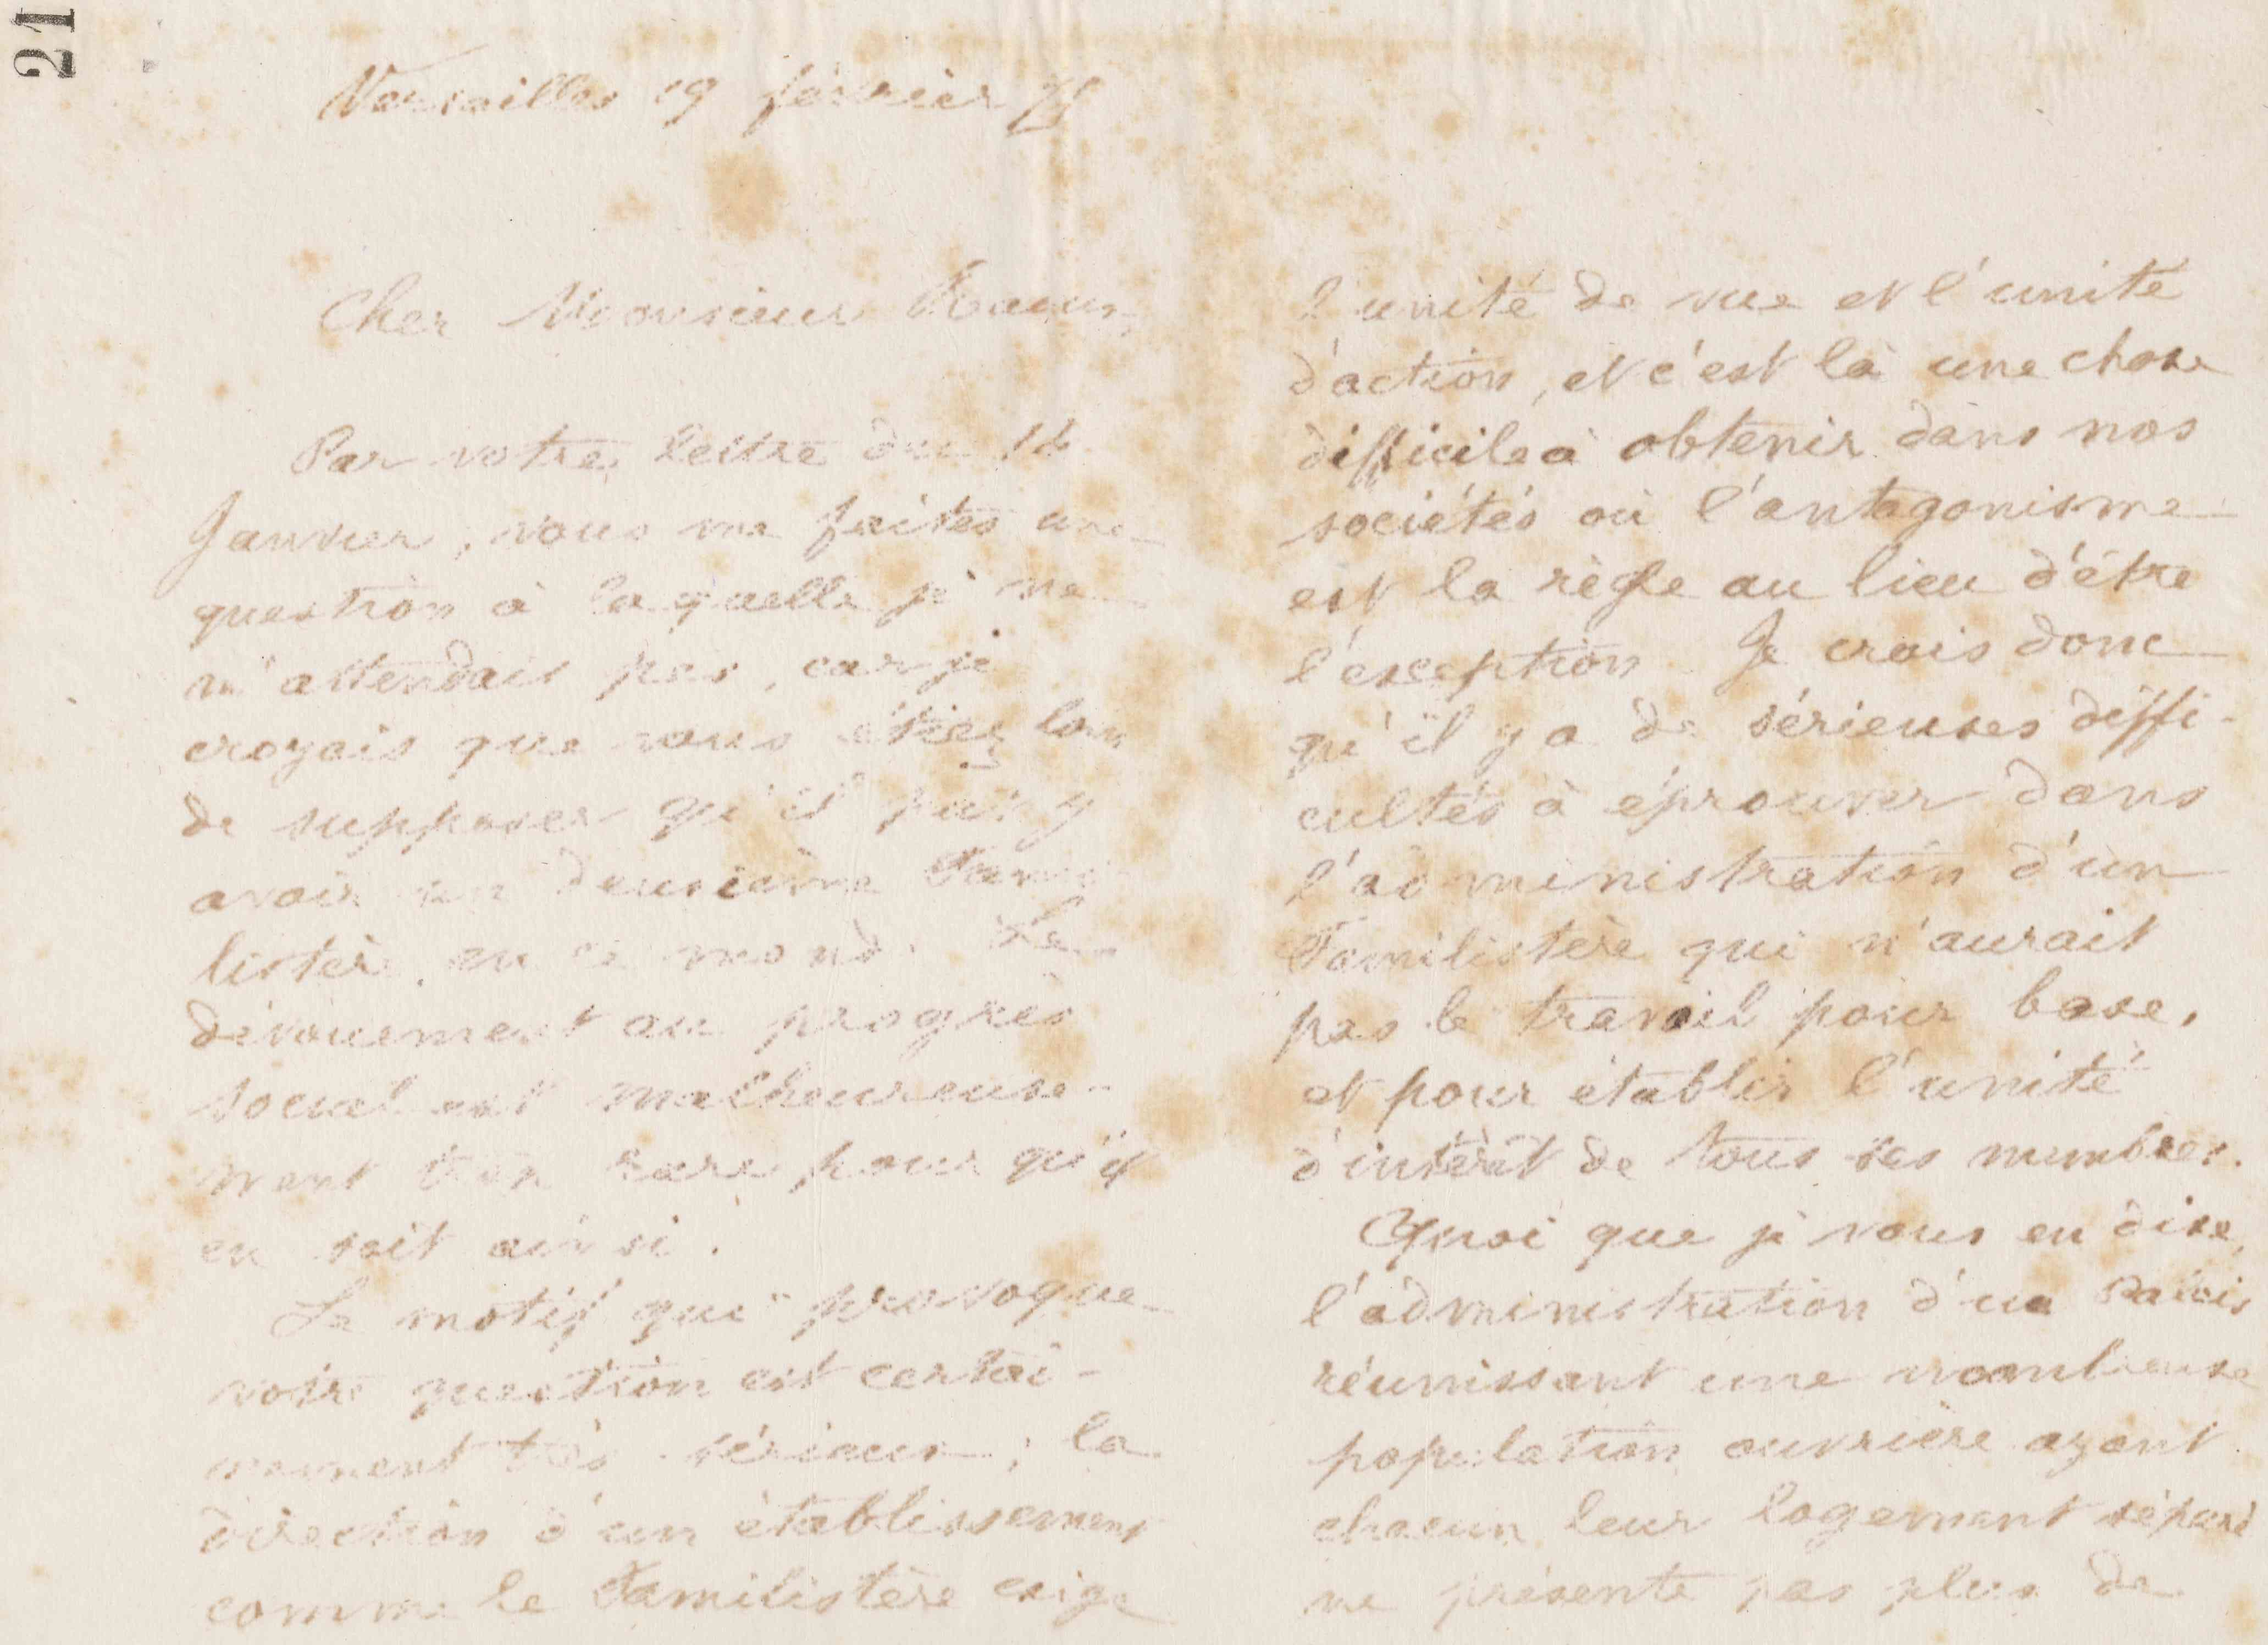 21
Versailles 19 février
Cher Monsieur
Par votre lettre du 14
Janvier, vous me faites une
question à laquelle je ne
m'attendais pas, car je
croyais que vous étiez loin
de supposer qu'il put y
avoir un deuxième Fami
listère en ce monde. Le
dévouement au progrès
social est malheureuse-
ment trop rare pour qu'il
en soit ainsi.
Le motif qui provoque
votre question est certai-
nement très sérieux; la
direction d'un établissement
comme le Familistère exige
l'unité de vue et l'unité
d'action, et c'est là une chose
difficile à obtenir dans nos
sociétés où l'antagonisme
est la règle au lieu d'être
l'exception Je crois donc
qu'il y a de sérieuses diffi-
cultés à éprouver dans
l'administration d'un
Familistère qui n'aurait
pas le travail pour base,
et pour établir l'unité
d'intérêt de tous ses membres.
Quoi que je vous en dise,
l'administration d'un Palais
réunissant une nombreuse
population ouvrière ayant
chacun leur logement séparé
ne présente pas plus de